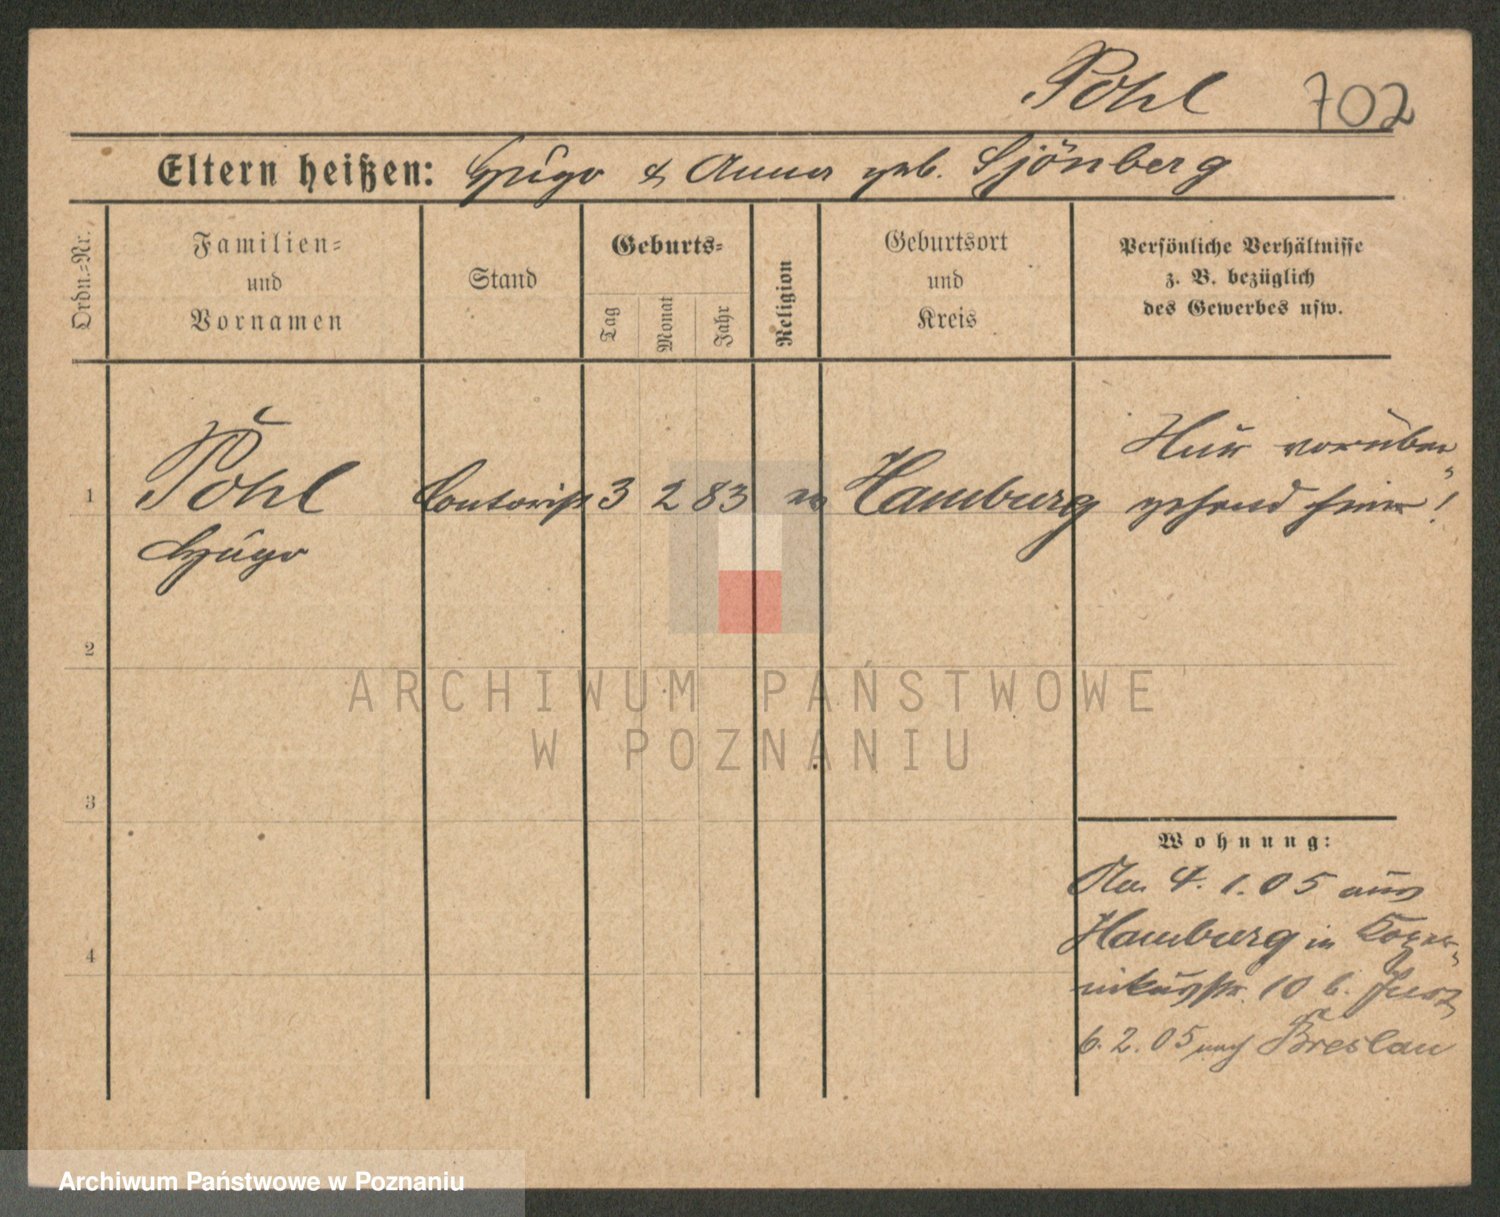 Pohl 702
Eltern heißen: Hugo & Anna geb. Sjönberg
Ordn.=Nr.
Familien=
und
Vornamen
Stand
Geburts=
Tag
Monat
Jahr
Religion
Geburtsort
und
Kreis
Persönliche Verhältnisse
z. B. bezüglich
des Gewerbes usw.
1
Pohl
Hugo
Contorist
3 2 83
ev
Hamburg
Nur vorüber
gehend hier!
2
3
4
Wohnung:
4. 1. 05 aus
Hamburg in Koper-
nikusstr. 10 b.
6. 2. 05 nach Breslau
ARCHIWUM PAŃSTWOWE
W POZNANIU
Archiwum Państwowe w Poznaniu